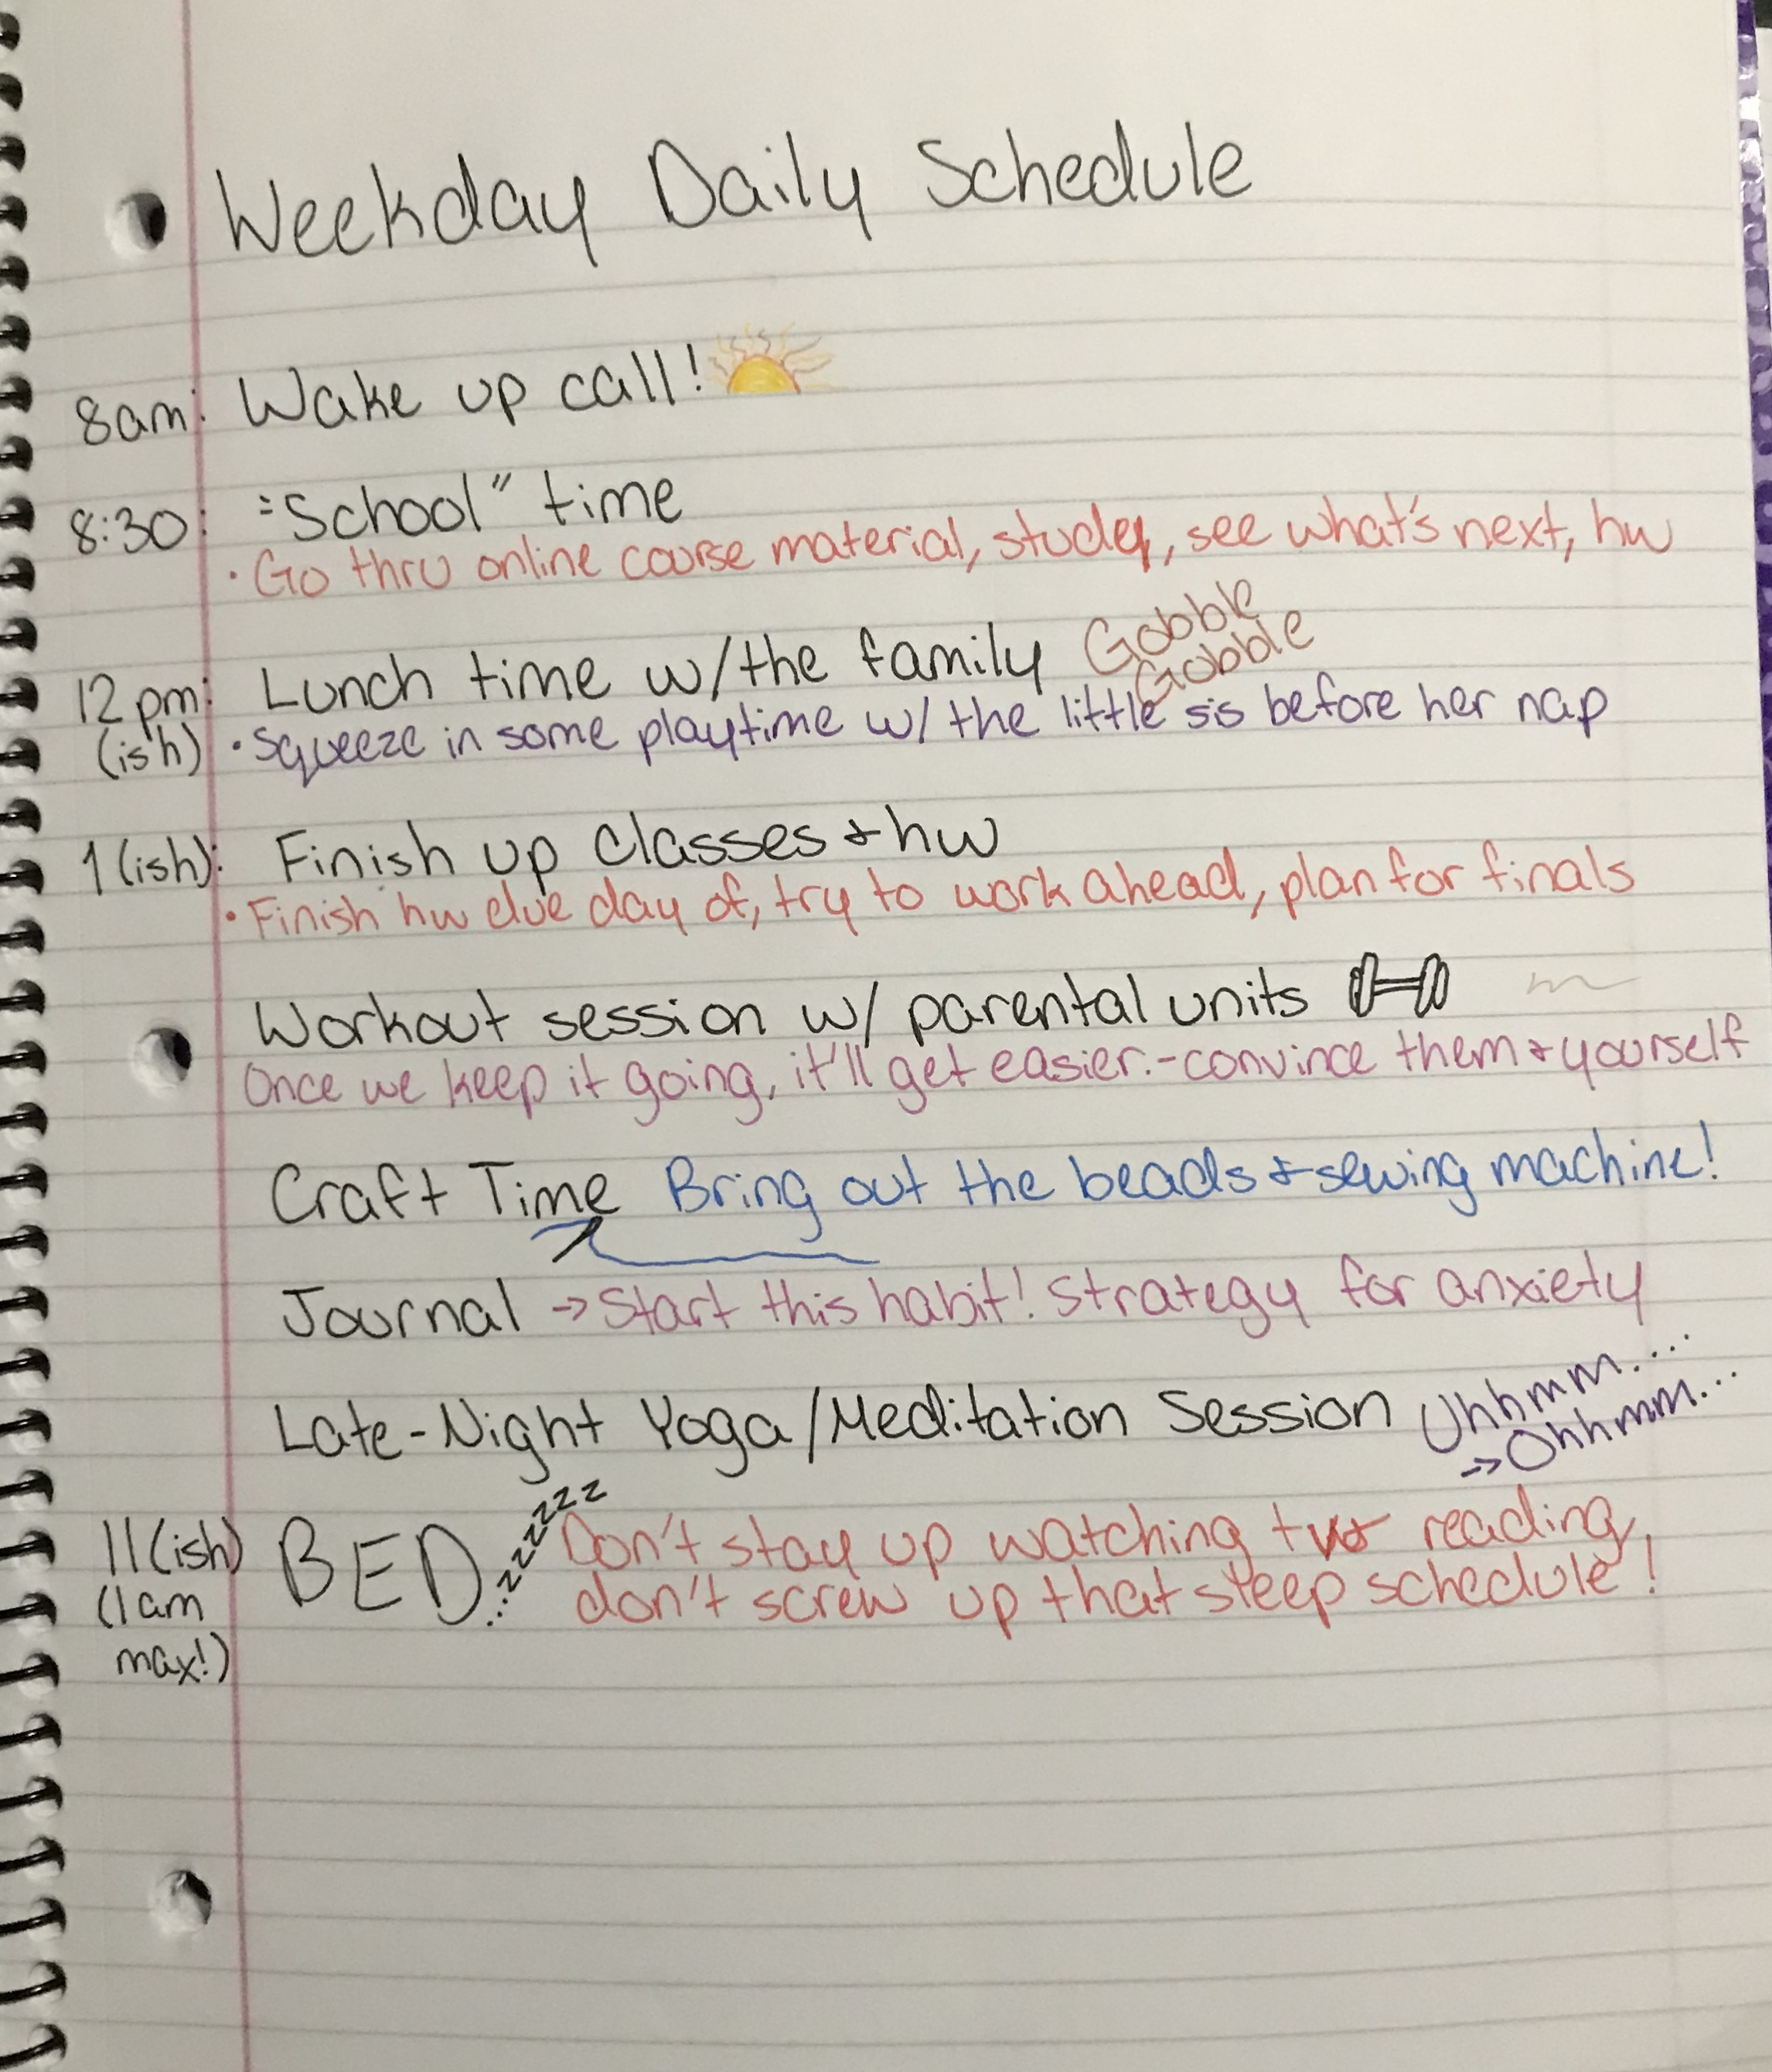 Weekday Daily Schedule
8am: Wake up call!
8:30: "School" time
• Go thru online course material, study, see what's next, hw
12pm: Lunch time w/the family Gobble
Gobble
(ish) • Squeeze in some playtime w/ the little sis before her nap
1(ish): Finish up classes + hw
• Finish hw due day of, try to work ahead, plan for finals
Workout session w/ parental units
Once we keep it going, it'll get easier.-convince them + yourself
Craft Time Bring out the beads + sewing machine!
Journal → Start this habit! Strategy for anxiety
Late-Night Yoga/Meditation Session Uhhmm....
→ Ohhmm...
11(ish) BED...zzzzzzz Don't stay up watching reading,
(1am don't screw up that sleep schedule!
max!)